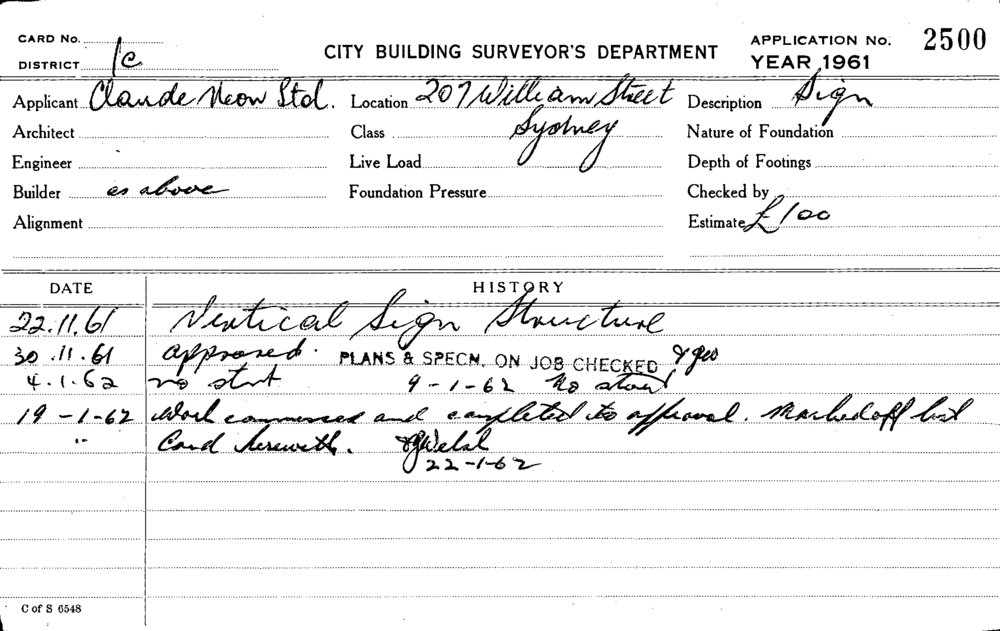 CARD No.
CITY BUILDING SURVEYOR'S DEPARTMENT
APPLICATION No. 2500
DISTRICT 1c
YEAR 1961
Applicant Claude Neon Ltd. Location 207 William Street Description Sign
Architect Class Sydney Nature of Foundation
Engineer Live Load Depth of Footings
Builder as above Foundation Pressure Checked by
Alignment Estimate £100
DATE HISTORY
22.11.61 Vertical Sign Structure
30.11.61 approved. PLANS & SPECN. ON JOB CHECKED
4.1.62 no start 9-1-62 No start
19-1-62 Work commenced and completed to approval. Marked off list
" Card herewith.
22-1-62
C of S 6548